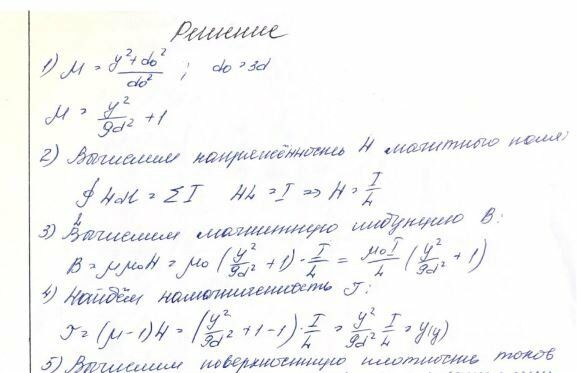 Решение
1) μ = (y²+do²)/do² ; do = 3d
μ = y²/9d² + 1
2) Вычислим напряжённость H магнитного поля:
∮ Hdl = ΣI HL = I => H = I/L
L
3) Вычислим магнитную индукцию B:
B = μμ₀H = μ₀ (y²/9d² + 1) · I/L = μ₀I/L (y²/9d² + 1)
4) Найдём намагниченность J:
J = (μ-1)H = (y²/9d² + 1 - 1) · I/L = y²/9d² I/L = y(y)
5) Вычислим поверхностную плотность токов